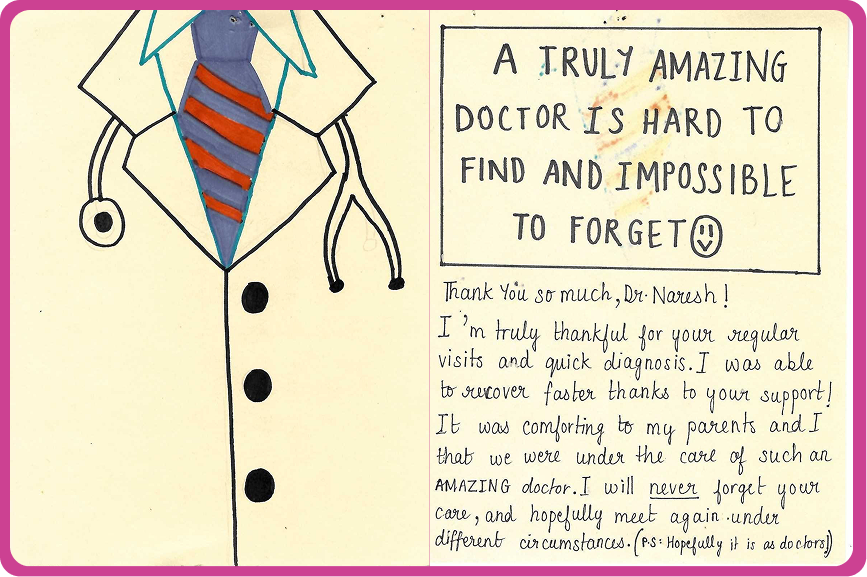 A TRULY AMAZING
DOCTOR IS HARD TO
FIND AND IMPOSSIBLE
TO FORGET
Thank You so much, Dr. Naresh!
I'm truly thankful for your regular
visits and quick diagnosis. I was able
to recover faster thanks to your support!
It was comforting to my parents and I
that we were under the care of such an
AMAZING doctor. I will never forget your
care, and hopefully meet again under
different circumstances. (P.S: Hopefully it is as doctors!)